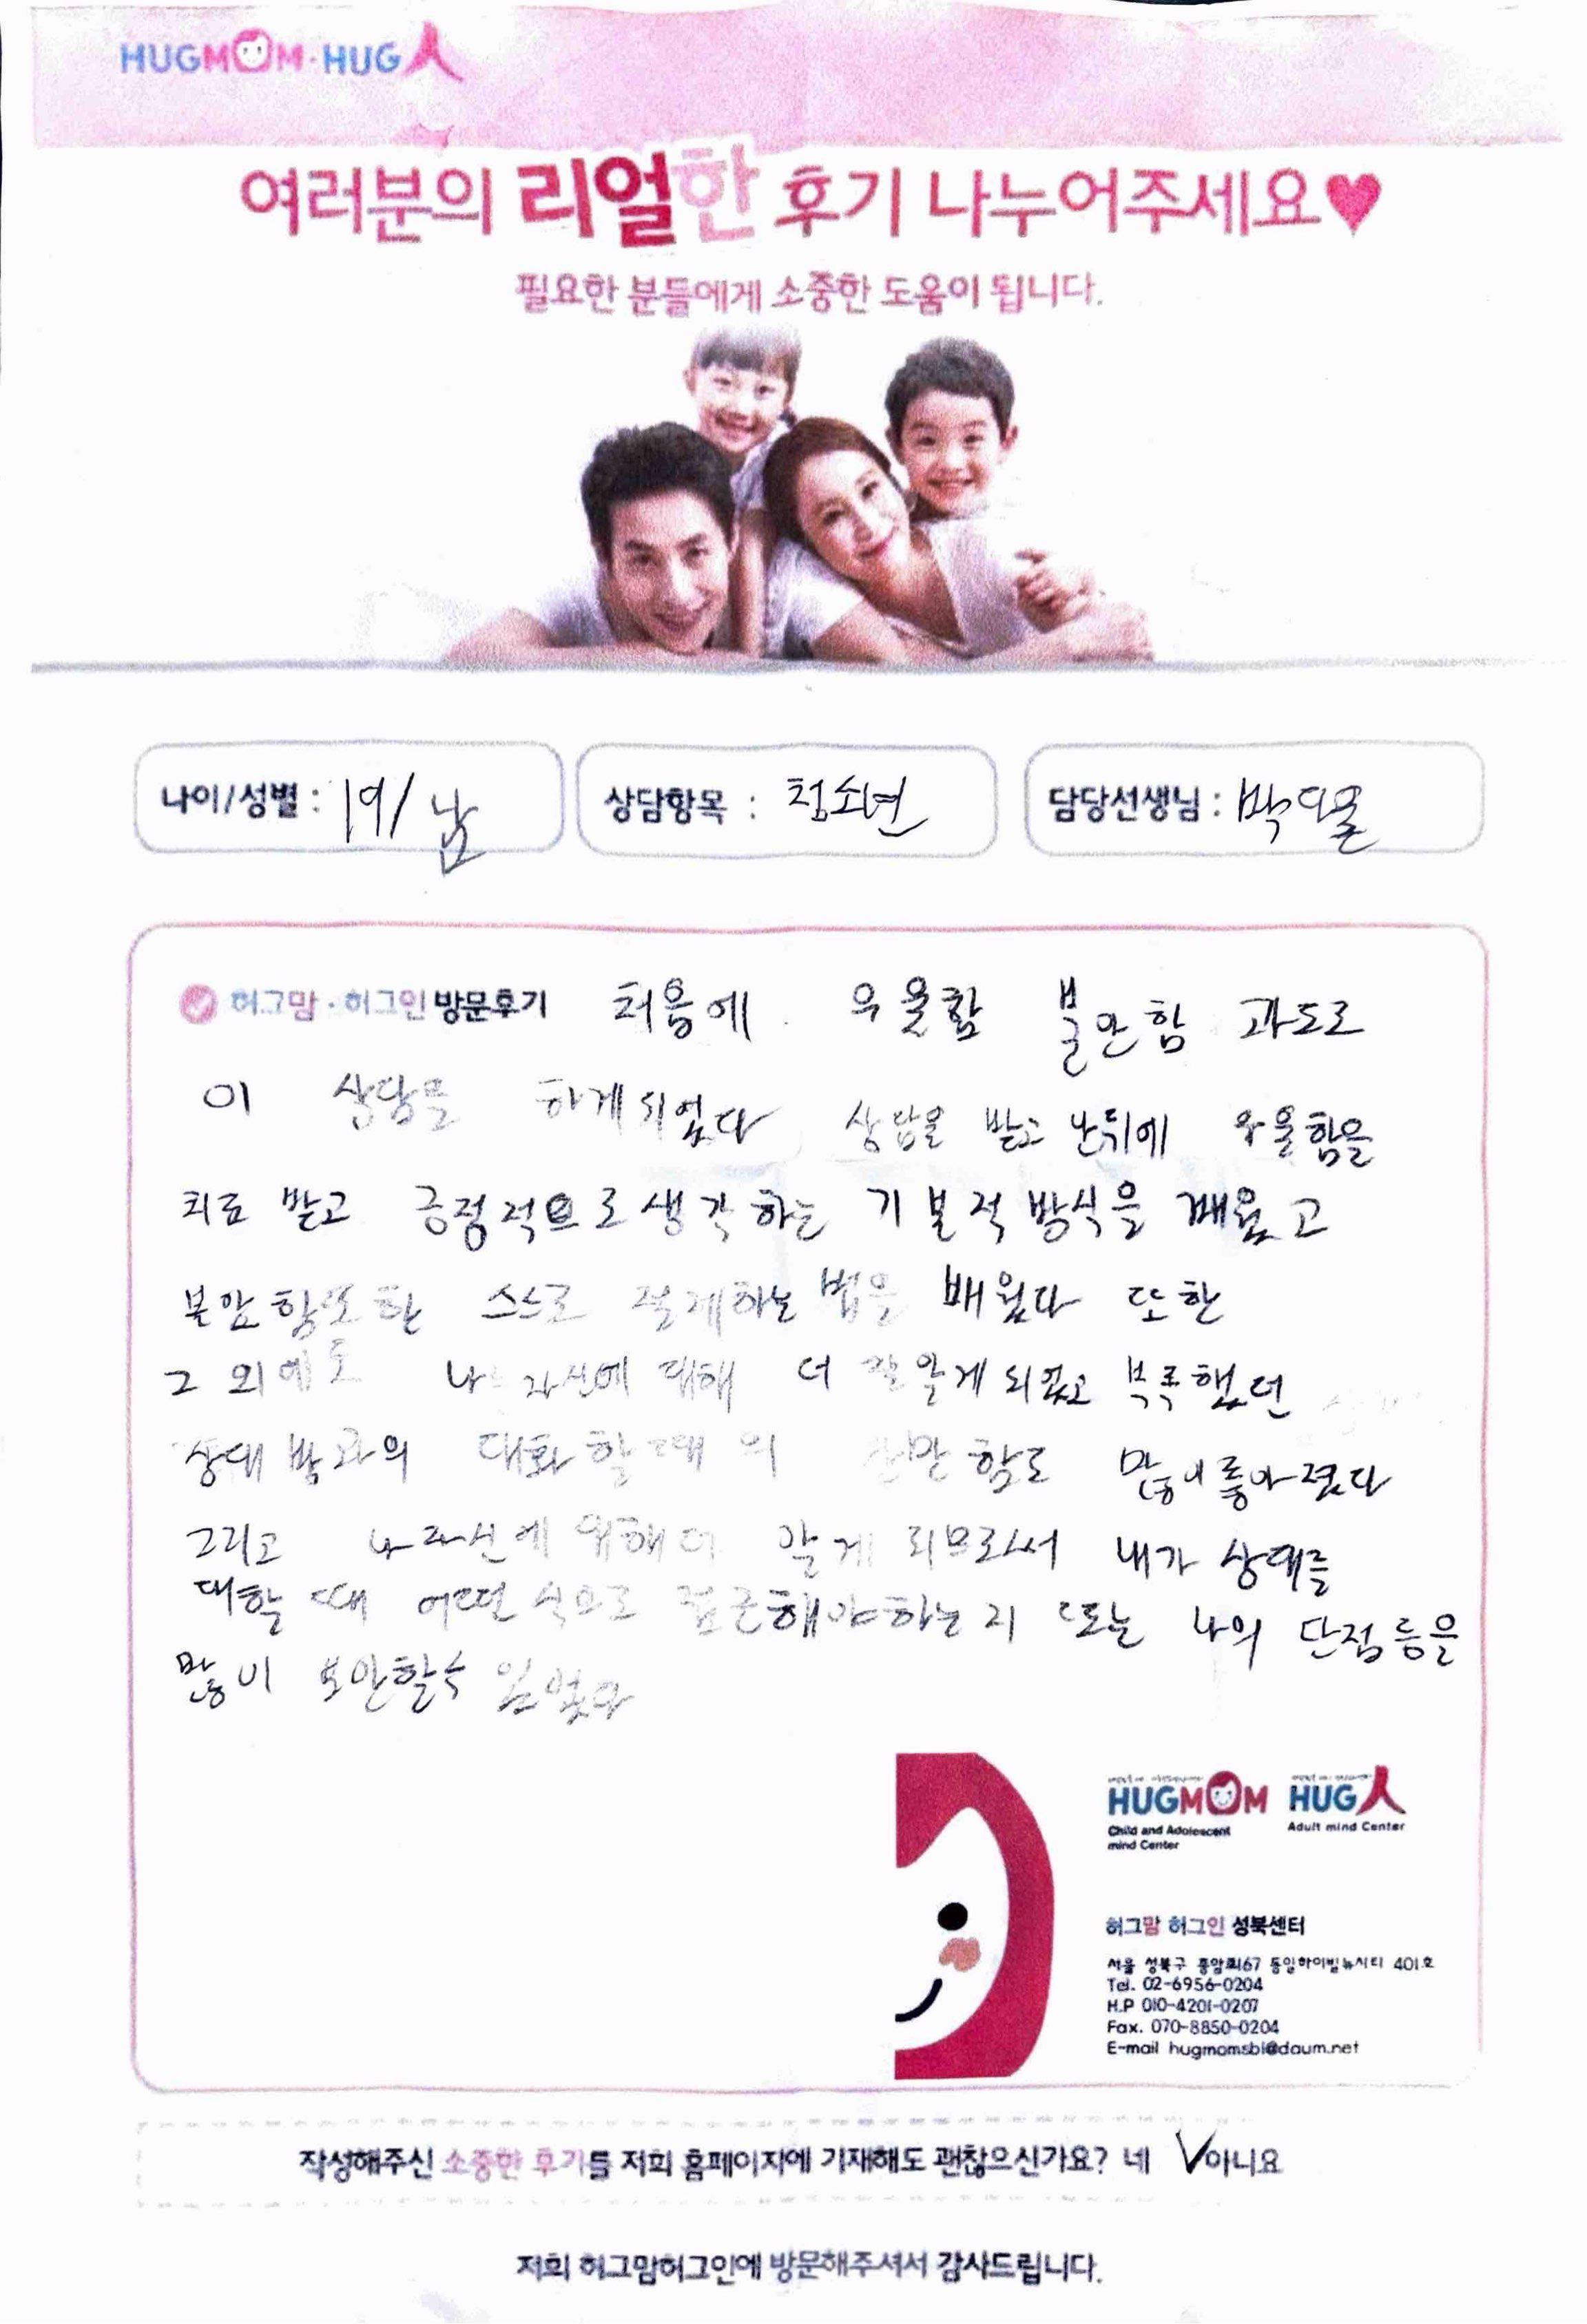 HUGMOM·HUG人
여러분의 리얼한 후기 나누어주세요♥
필요한 분들에게 소중한 도움이 됩니다.
나이/성별 : 19/남
상담항목 : 청소년
담당선생님 : 박
허그맘·허그인 방문후기 처음에 우울함 불안함 과도로
이 상담를 하게되었다 상담을 받고 난뒤에 우울함을
치료 받고 긍정적으로 생각하는 기본적 방식을 깨웠고
불안함또한 스스로 절제하는 법을 배웠다 또한
그 외에도 나 자신에 대해 더 잘 알게 되었고 부족했던
상대방과의 대화할때의 산만함도 많이좋아졌다
그리고 나 자신에 대해 더 알게 되므로서 내가 상대를
대할 때 어떤 식으로 접근해야하는지 또는 나의 단점 등을
많이 보안할수 있었다
HUGMOM HUG人
Child and Adolescent
mind Center
Adult mind Center
허그맘 허그인 성북센터
서울 성북구 종암로167 동일하이빌뉴시티 401호
Tel. 02-6956-0204
H.P 010-4201-0207
Fax. 070-8850-0204
E-mail hugmomsbl@daum.net
작성해주신 소중한 후기를 저희 홈페이지에 기재해도 괜찮으신가요? 네 V아니요
저희 허그맘허그인에 방문해주셔서 감사드립니다.